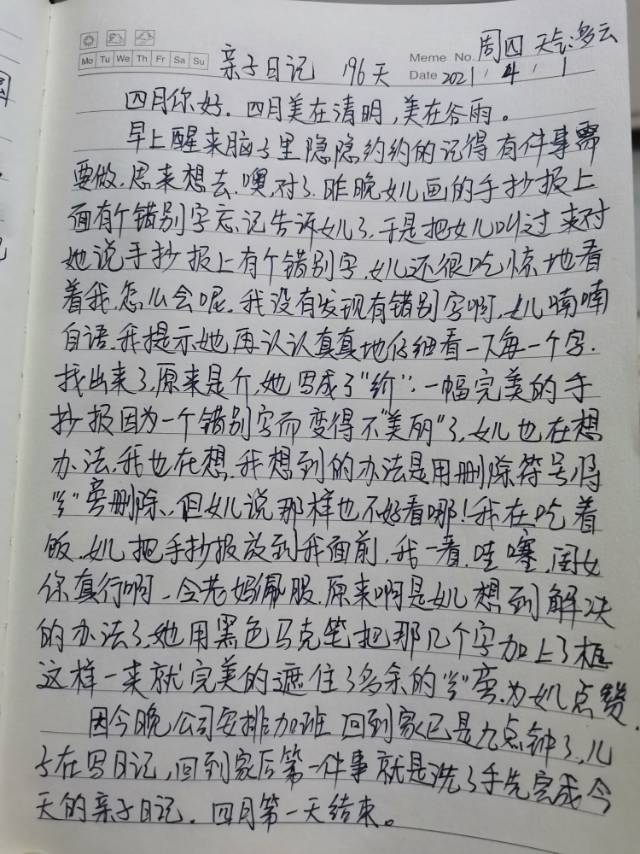 周四 天气:多云
Mo Tu We Th Fr Sa Su 亲子日记 196天 Meme No.
Date 2021 / 4 / 1
四月你好.四月美在清明,美在谷雨。
早上醒来脑子里隐隐约约的记得有件事需
要做.思来想去.噢,对了.昨晚女儿画的手抄报上
面有个错别字忘记告诉女儿了.于是把女儿叫过来对
她说手抄报上有个错别字.女儿还很吃惊地看
着我.怎么会呢.我没有发现有错别字啊.女儿喃喃
自语.我提示她再认认真真地仔细看一下每一个字.
找出来了.原来是介,她写成了"价".一幅完美的手
抄报因为一个错别字而变得不"美丽"了.女儿也在想
办法.我也在想.我想到的办法是用删除符号将
旁删除.但女儿说那样也不好看哪!我在吃着
饭.女儿把手抄报放到我面前.我一看.哇噻.闺女
你真行啊.令老妈佩服.原来啊是女儿想到解决
的办法了.她用黑色马克笔把那几个字加上了框
这样一来就完美的遮住了多余的 旁.为女儿点赞.
因今晚公司安排加班 回到家已是九点钟了.儿
子在写日记,回到家后第一件事就是洗了手先完成今
天的亲子日记.四月第一天结束。